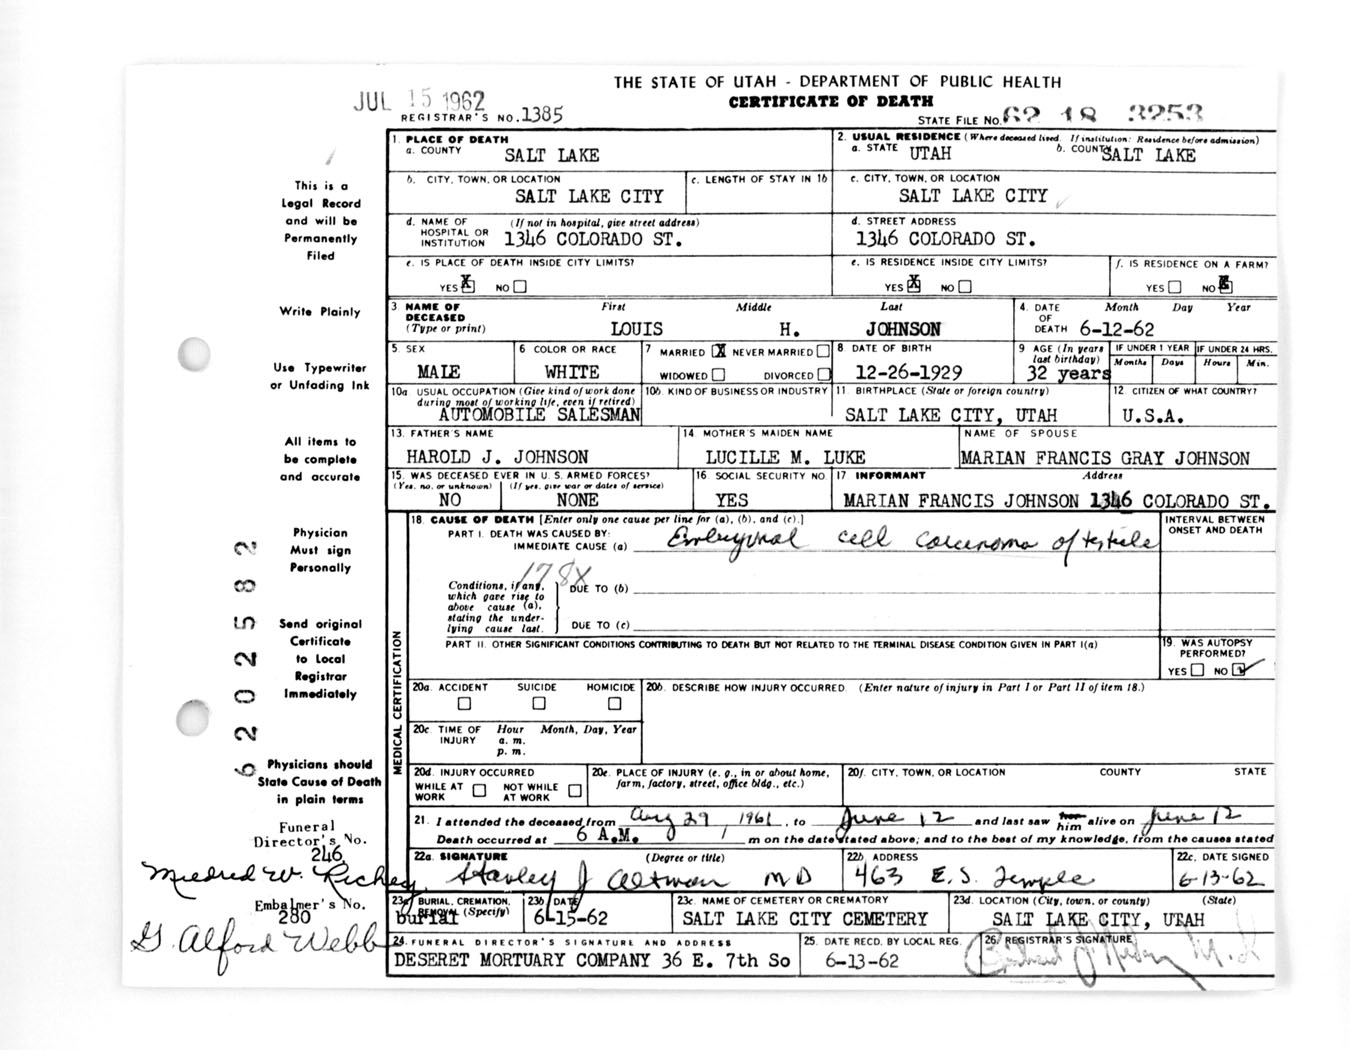 THE STATE OF UTAH - DEPARTMENT OF PUBLIC HEALTH
JUL 15 1962
CERTIFICATE OF DEATH
REGISTRAR'S NO. 1385
STATE FILE NO. 62 18 3253
1. PLACE OF DEATH
a. COUNTY SALT LAKE
2. USUAL RESIDENCE (Where deceased lived. If institution: Residence before admission)
a. STATE UTAH b. COUNTY SALT LAKE
b. CITY, TOWN, OR LOCATION SALT LAKE CITY
c. LENGTH OF STAY IN 1b
c. CITY, TOWN, OR LOCATION SALT LAKE CITY
d. NAME OF HOSPITAL OR INSTITUTION (If not in hospital, give street address) 1346 COLORADO ST.
d. STREET ADDRESS 1346 COLORADO ST.
e. IS PLACE OF DEATH INSIDE CITY LIMITS? YES X NO
e. IS RESIDENCE INSIDE CITY LIMITS? YES X NO
f. IS RESIDENCE ON A FARM? YES NO X
This is a
Legal Record
and will be
Permanently
Filed
Write Plainly
Use Typewriter
or Unfading Ink
All items to
be complete
and accurate
Physician
Must sign
Personally
Send original
Certificate
to Local
Registrar
Immediately
Physicians should
State Cause of Death
in plain terms
6202582
3 NAME OF DECEASED (Type or print) First Middle Last
LOUIS H. JOHNSON
4. DATE OF DEATH Month Day Year
6-12-62
5. SEX MALE
6 COLOR OR RACE WHITE
7 MARRIED X NEVER MARRIED
WIDOWED DIVORCED
8 DATE OF BIRTH 12-26-1929
9 AGE (In years last birthday) 32 years
IF UNDER 1 YEAR Months Days
IF UNDER 24 HRS. Hours Min.
10a USUAL OCCUPATION (Give kind of work done during most of working life, even if retired)
AUTOMOBILE SALESMAN
10b. KIND OF BUSINESS OR INDUSTRY
11. BIRTHPLACE (State or foreign country)
SALT LAKE CITY, UTAH
12. CITIZEN OF WHAT COUNTRY?
U.S.A.
13. FATHER'S NAME
HAROLD J. JOHNSON
14. MOTHER'S MAIDEN NAME
LUCILLE M. LUKE
NAME OF SPOUSE
MARIAN FRANCIS GRAY JOHNSON
15. WAS DECEASED EVER IN U.S. ARMED FORCES?
(Yes, no, or unknown) (If yes, give war or dates of service)
NO NONE
16. SOCIAL SECURITY NO.
YES
17 INFORMANT Address
MARIAN FRANCIS JOHNSON 1346 COLORADO ST.
MEDICAL CERTIFICATION
18. CAUSE OF DEATH [Enter only one cause per line for (a), (b), and (c).]
INTERVAL BETWEEN ONSET AND DEATH
PART I. DEATH WAS CAUSED BY:
IMMEDIATE CAUSE (a) Embryonal cell carcinoma of testicle
178X
Conditions, if any, which gave rise to above cause (a), stating the underlying cause last.
DUE TO (b)
DUE TO (c)
PART II. OTHER SIGNIFICANT CONDITIONS CONTRIBUTING TO DEATH BUT NOT RELATED TO THE TERMINAL DISEASE CONDITION GIVEN IN PART I(a)
19. WAS AUTOPSY PERFORMED?
YES NO ✓
20a. ACCIDENT SUICIDE HOMICIDE
20b. DESCRIBE HOW INJURY OCCURRED (Enter nature of injury in Part I or Part II of item 18.)
20c. TIME OF INJURY Hour Month, Day, Year
a. m.
p. m.
20d. INJURY OCCURRED
WHILE AT WORK NOT WHILE AT WORK
20e. PLACE OF INJURY (e. g., in or about home, farm, factory, street, office bldg., etc.)
20f. CITY, TOWN, OR LOCATION COUNTY STATE
21. I attended the deceased from Aug 29 1961, to June 12 and last saw him alive on June 12
Death occurred at 6 A.M. m on the date stated above; and to the best of my knowledge, from the causes stated
22a. SIGNATURE (Degree or title)
Stanley J Altman MD
22b. ADDRESS
463 E. S. Temple
22c. DATE SIGNED
6-13-62
Funeral
Director's No.
246
Mildred W. Richey
Embalmer's No.
280
G. Alford Webb
23a BURIAL, CREMATION, REMOVAL (Specify)
burial
23b DATE
6-15-62
23c. NAME OF CEMETERY OR CREMATORY
SALT LAKE CITY CEMETERY
23d. LOCATION (City, town, or county) (State)
SALT LAKE CITY, UTAH
24. FUNERAL DIRECTOR'S SIGNATURE AND ADDRESS
DESERET MORTUARY COMPANY 36 E. 7th So
25. DATE RECD. BY LOCAL REG.
6-13-62
26. REGISTRAR'S SIGNATURE